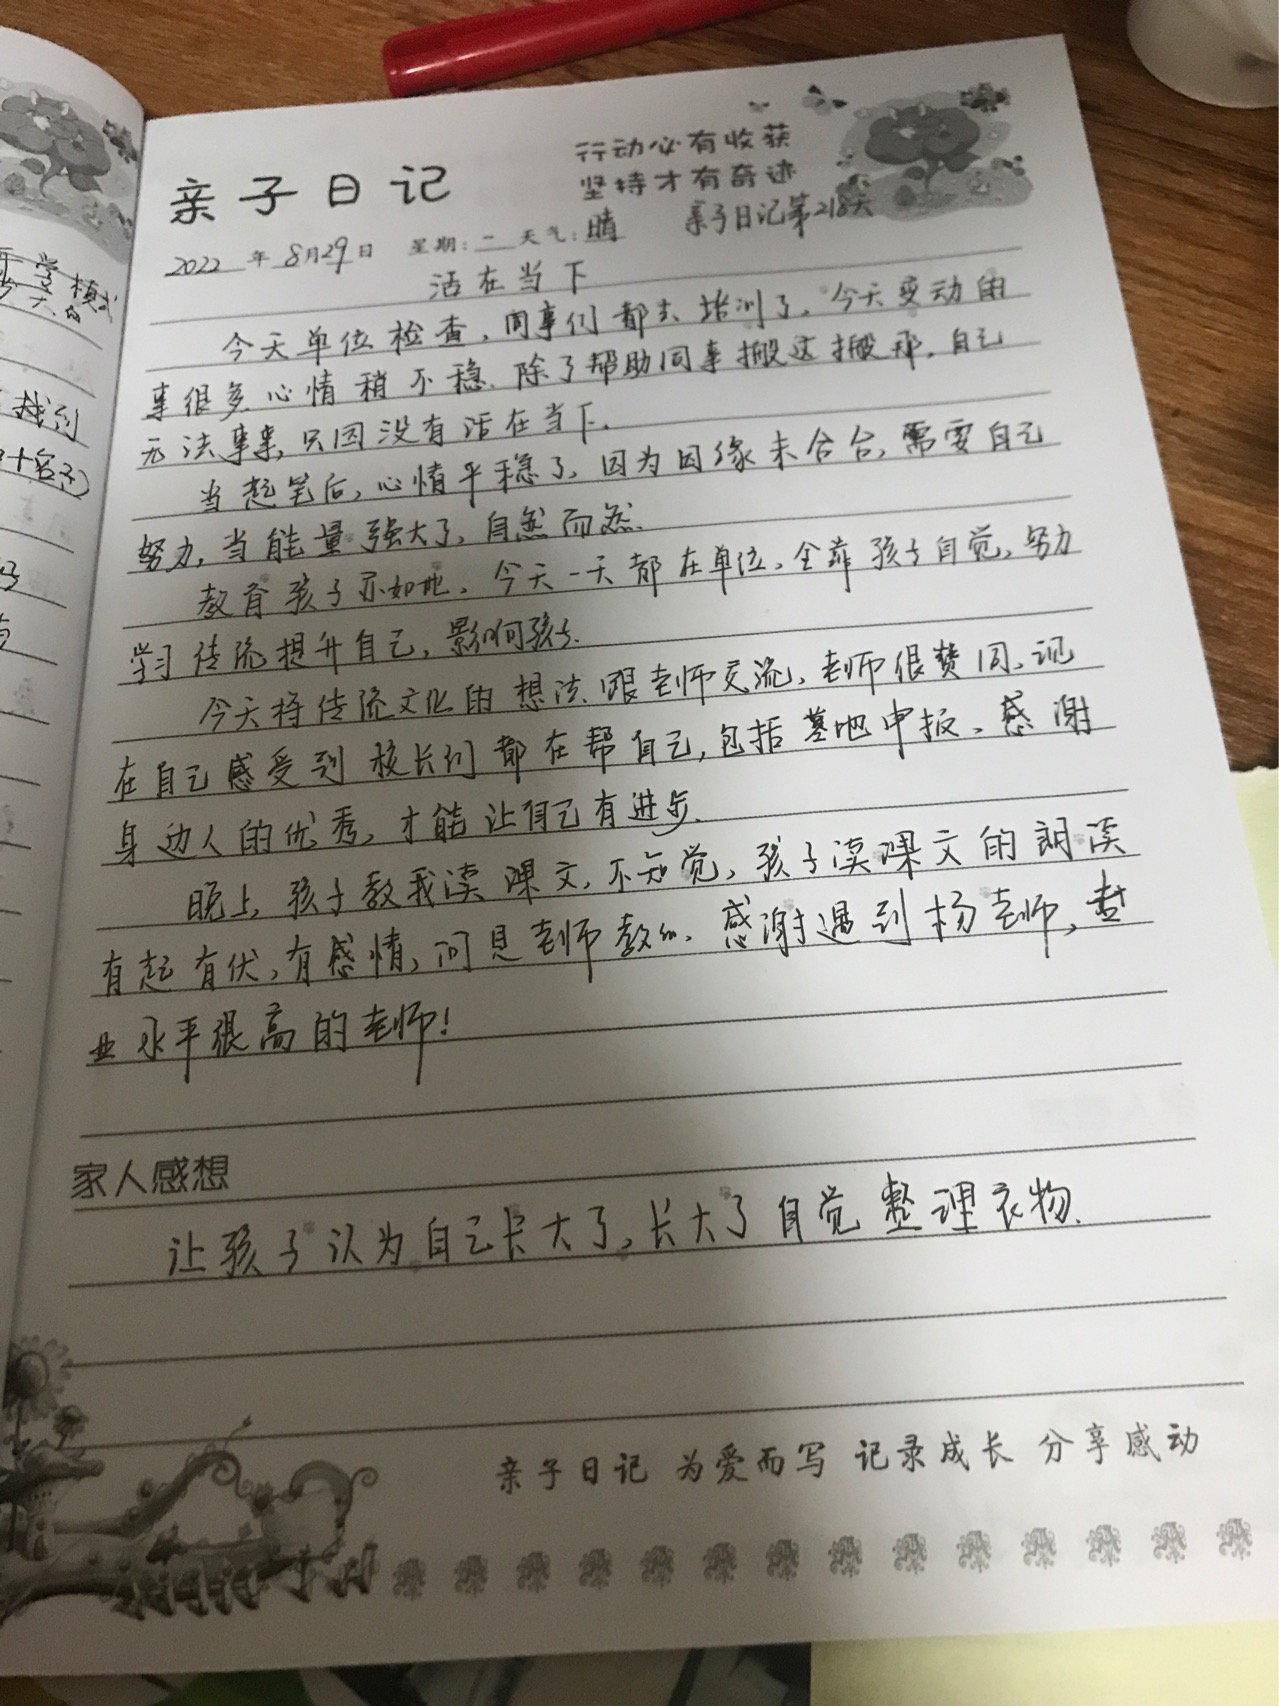 亲子日记
行动必有收获
坚持才有奇迹
亲子日记第218天
2022年8月29日 星期:二 天气:晴
活在当下
今天单位检查,同事们都去培训了,今天变动的
事很多,心情稍不稳,除了帮助同事搬这搬那,自己
无法事事,只因没有活在当下。
当起笔后,心情平稳了,因为因缘未合合,需要自己
努力,当能量强大了,自然而然。
教育孩子亦如此,今天一天都在单位,全靠孩子自觉,努力
学习传统提升自己,影响孩子。
今天将传统文化的想法跟老师交流,老师很赞同,现
在自己感受到校长们都在帮自己,包括基地申报,感谢
身边人的优秀,才能让自己有进步。
晚上,孩子教我读课文,不知觉,孩子读课文的朗读
有起有伏,有感情,问是老师教的,感谢遇到杨老师,专
业水平很高的老师!
家人感想
让孩子认为自己长大了,长大了自觉整理衣物。
亲子日记 为爱而写 记录成长 分享感动
模式
找到
十名)